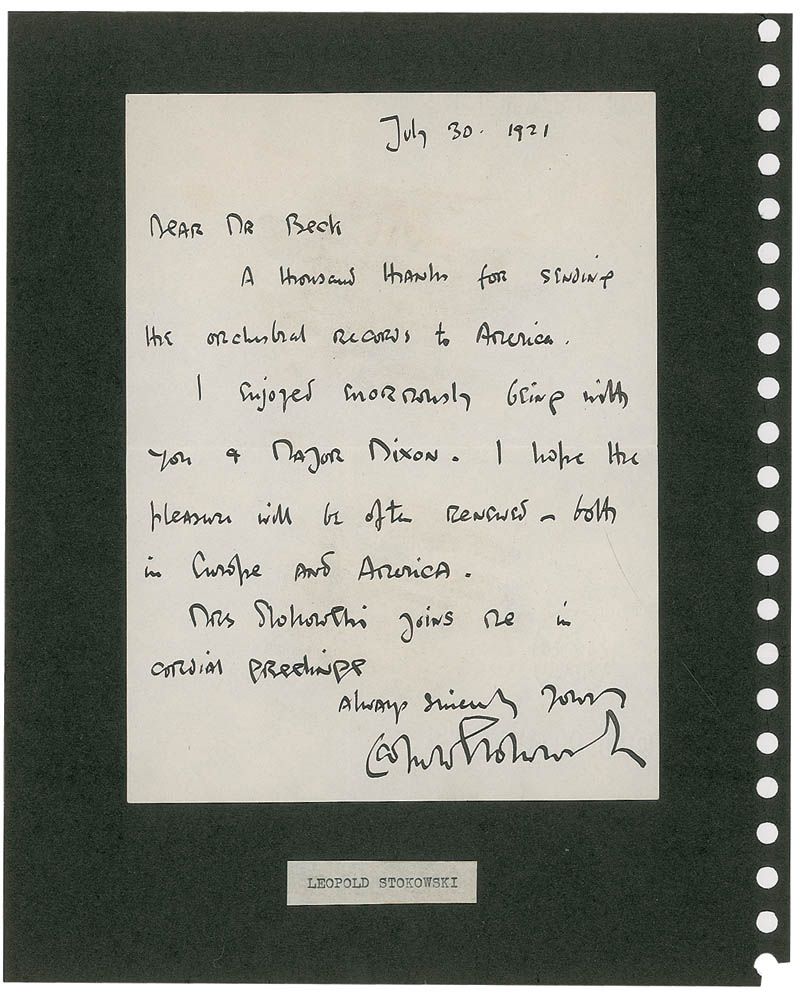 July 30. 1921
Dear Mr Beck
A thousand thanks for sending
the orchestral records to America.
I enjoyed enormously being with
you & Major Dixon. I hope the
pleasure will be often renewed – both
in Europe and America.
Mrs Stokowski joins me in
cordial greetings
Always sincerely yours
Leopold Stokowski
LEOPOLD STOKOWSKI